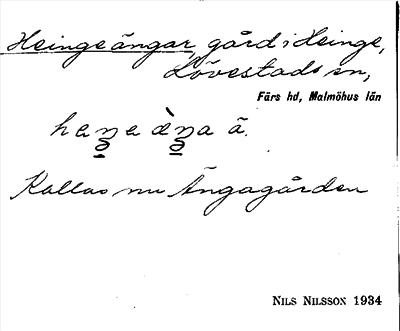 Heinge ängar, gård i Heinge,
Lövestads sn,
Färs hd, Malmöhus län
ä.
Kallas nu Ängagården
NILS NILSSON 1934